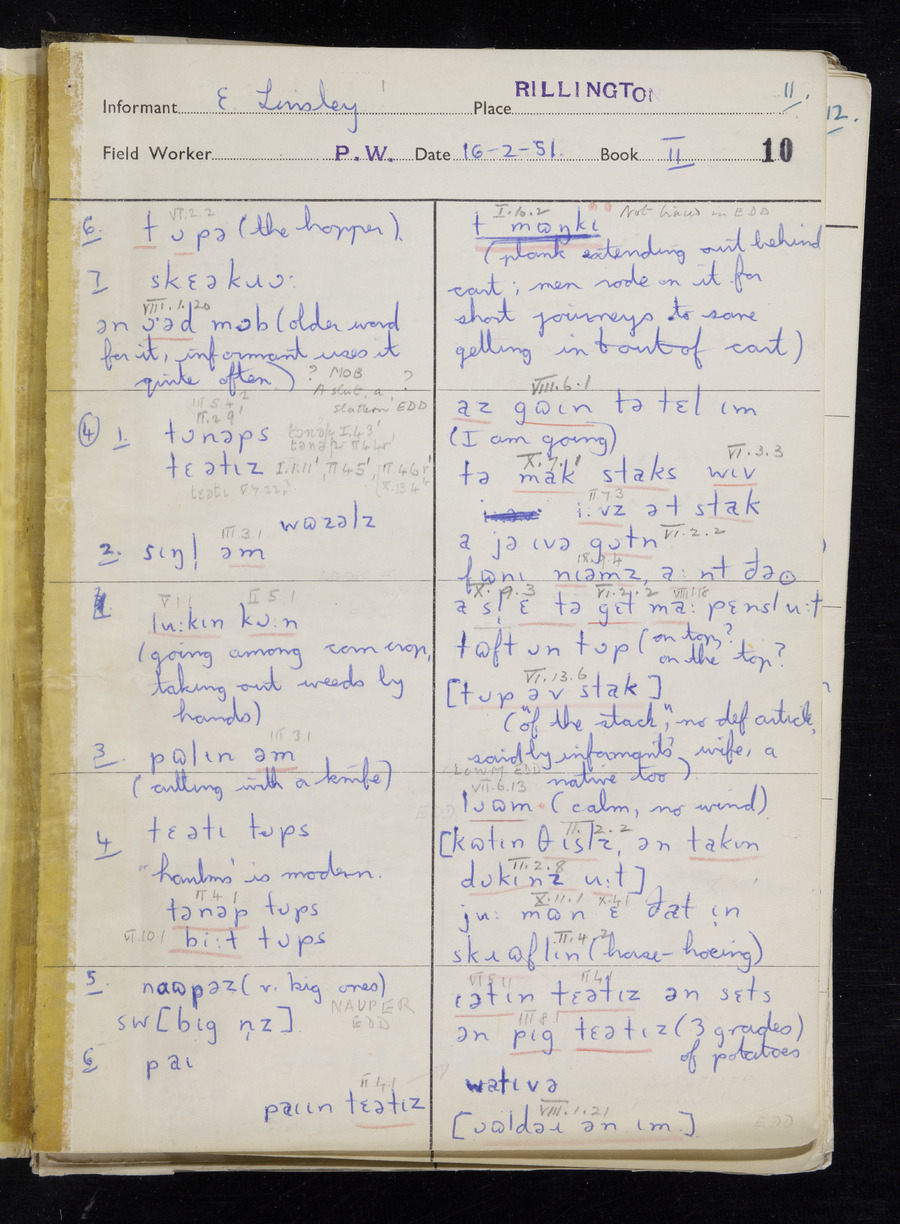 Informant E Linsley Place RILLINGTON 11.
12.
Field Worker P.W. Date 16-2-51. Book II 10
VI.2.2
6. t ʊpə (the hopper).
7 skɛəkuʊ:
VIII.1.20
ən ʊ'əd mɒb (older word
for it, informant uses it
quite often) ? MOB ?
A slut, a
slattern EDD
III 5.4
II.2.9'
④ 1. tʊnəps
tɛətɪz I.1.11', II 45', II 46
wɒzəlz
III.3.1
2. sɪŋl əm
V 1 1 II 5 1
lu:kɪn kʊ:n
(going among corn crop,
taking out weeds by
hands)
III 3.1
3. pɒlɪn əm
(cutting with a knife)
4 tɛətɪ tɒps
"haulms' is modern.
II 4 1
tənəp tʊps
VI.10.1 bi:t tʊps
5. nawpəz (v. big ones)
NAUPER
EDD
sw [big n̩z].
6 paɪ
II 4.1
paɪɪn tɛətɪz
I.6.2 Not traced in EDD
t mɒŋkɪ
(plank extending out behind
cart; men rode on it for
short journeys to save
getting in & out of cart)
VIII.6.1
az gɒɪn tə tɛl ɪm
(I am going)
X.7.1 VI.3.3
tə mak staks wɪv
II.7.3
i:vz ət stak
a jə ɪvə gɒtn VI.2.2
IX.9.4
fɒnɪ nɪəmz, a:nt ðəʊ
X.9.3 VI.2.2 VIII.1.8
a sl ɛ tə gɛt ma: pɛnsl u:t
tɒft ʊn tʊp (on top?
on the top?
VI.13.6
[tʊp əv stak]
("of the stack", no def article,
said by informant's wife, a
native too).
LOWM EDD
VII.6.13
lʊəm (calm, no wind)
II.2.2
[kɒtɪn θɪslz, ən takɪn
II.2.8
dʊkɪnz u:t]
X.11.1 X.4.1
ju: mɒn ɛ ðat ɪn
II.4.2
skɪɒflɪn (horse-hoeing)
VI 5 11 II 4 1
ɪətɪn tɛətɪz ən sɛts
III 8 1
ən pɪg tɛətɪz (3 grades)
of potatoes
watɪvə
VIII.1.21
[ʊɒldəɪ ən ɪm.]
EDD